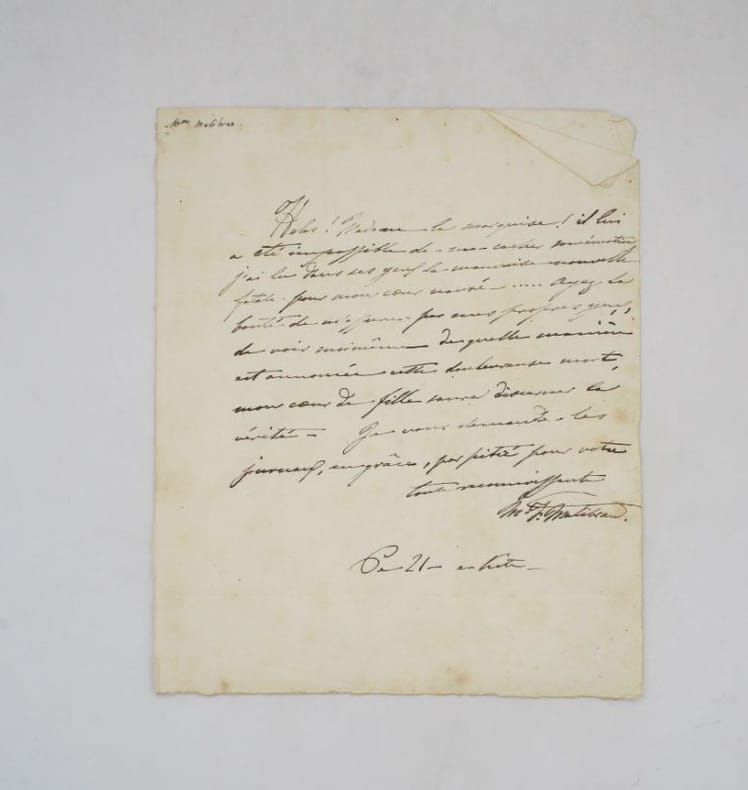 Mme Malibran
Hélas! Madame la marquise! il lui
a été impossible de me cacher son émotion,
j'ai lu dans ses yeux la mauvaise nouvelle
fatale pour mon cœur navré ..... Ayez la
bonté de m'assurer par mes propres yeux,
de voir moimême de quelle manière
est annoncée cette douloureuse mort,
mon cœur de fille saura discerner la
vérité - Je vous demande les
journaux, en grâce, par pitié pour votre
toute reconnaissante
M. F. Malibran.
Ce 21 -